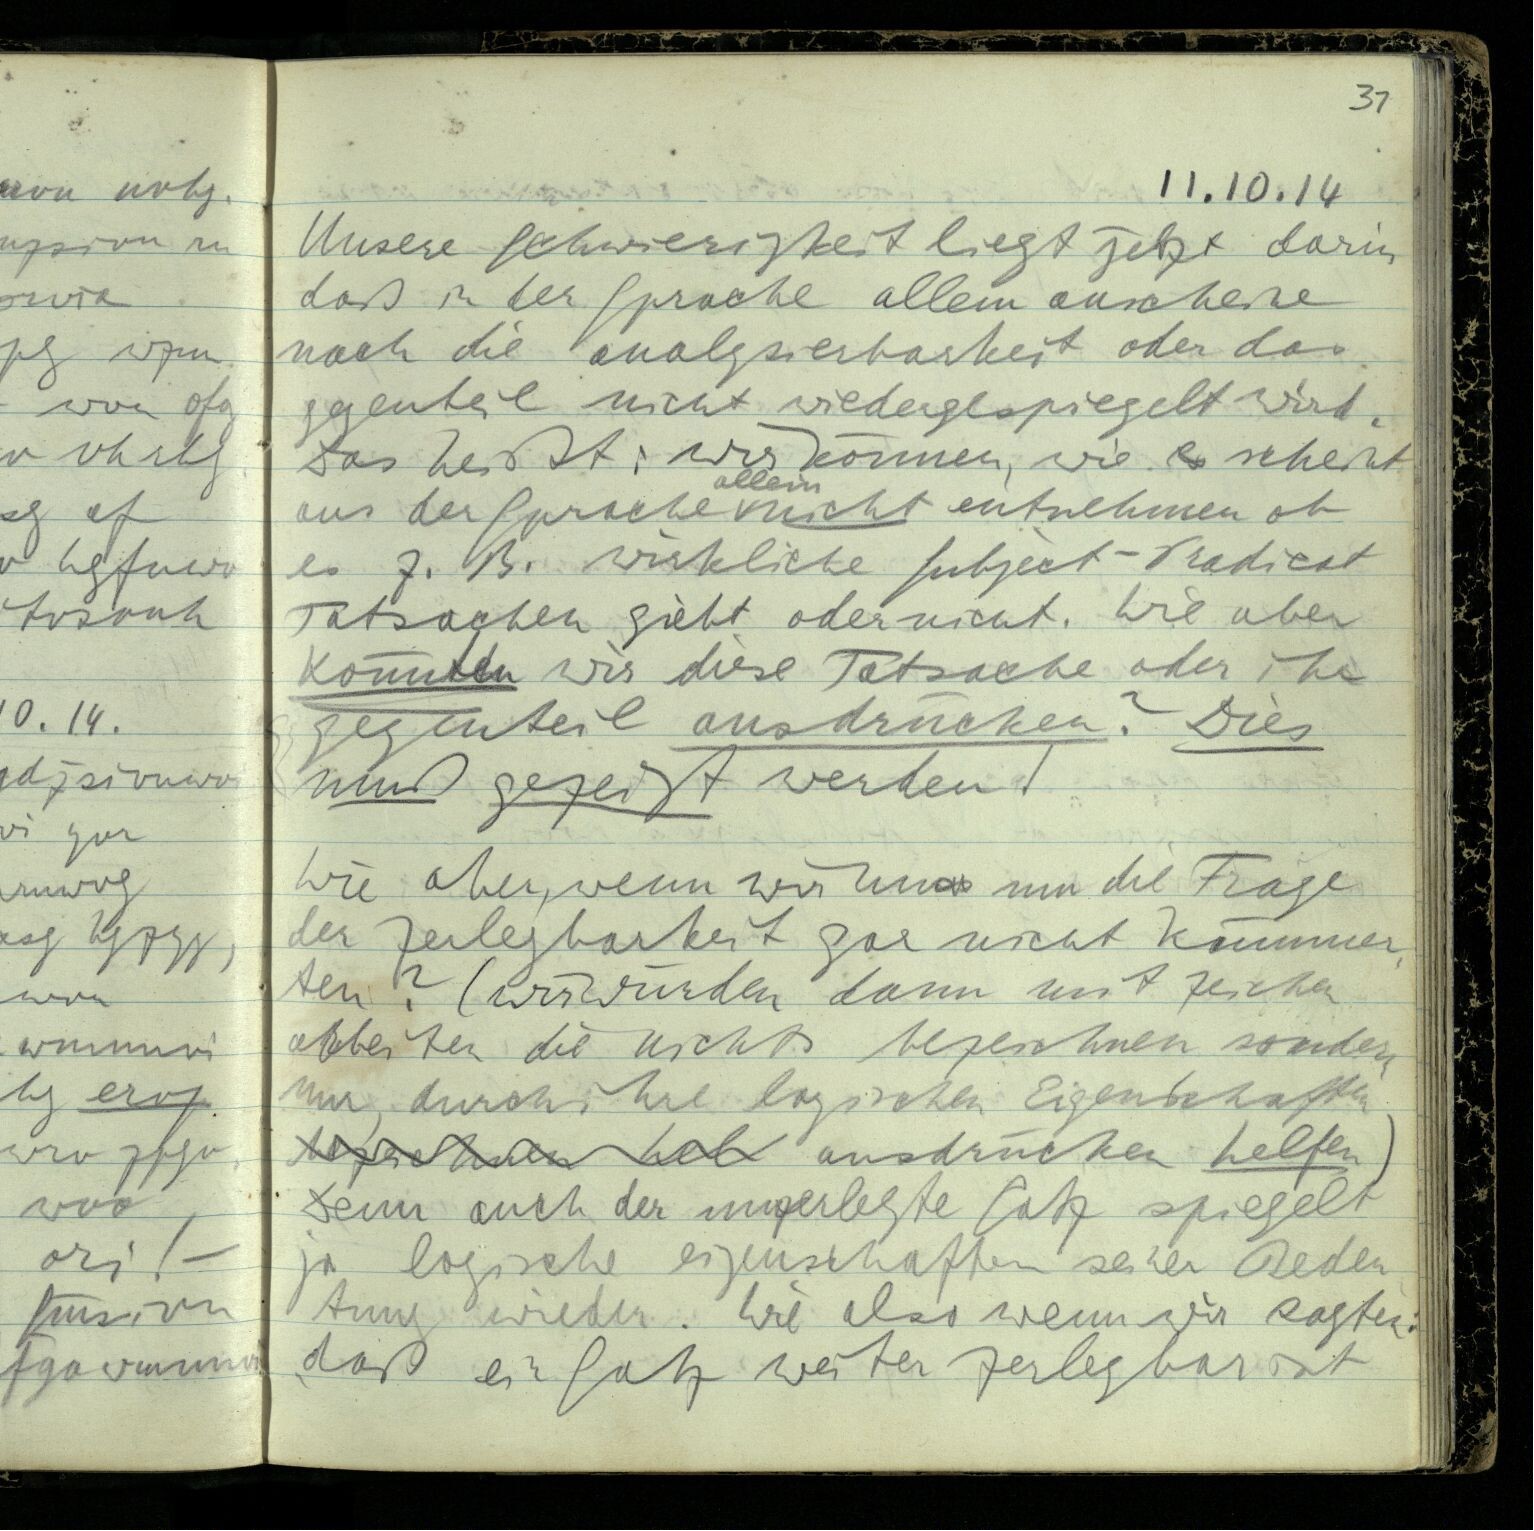 37
11.10.14
Unsere Schwierigkeit liegt jetzt darin
daß in der Sprache allem anscheine
nach die analysierbarkeit oder das
gegenteil nicht wiedergespiegelt wird.
Das heißt: wir können, wie es scheint
allein
aus der Sprache nicht entnehmen ob
es z. B. wirkliche Subject-Prädicat
Tatsachen giebt oder nicht. Wie aber
könnten wir diese Tatsache oder ihr
gegenteil ausdrücken? Dies
muß gezeigt werden!
Wie aber, wenn wir uns um die Frage
der zerlegbarkeit gar nicht kümmer-
ten? (wir würden dann mit zeichen
arbeiten die nichts bezeichnen sondern
nur durch ihre logischen Eigenschaften
bezeichnen hel ausdrücken helfen)
Denn auch der unzerlegte Satz spiegelt
ja logische eigenschaften seiner Bedeu
tung wieder. Wie also wenn wir sagten:
daß ein Satz weiter zerlegbar ist
uvi gar
won
woo
ori! –
10.14.